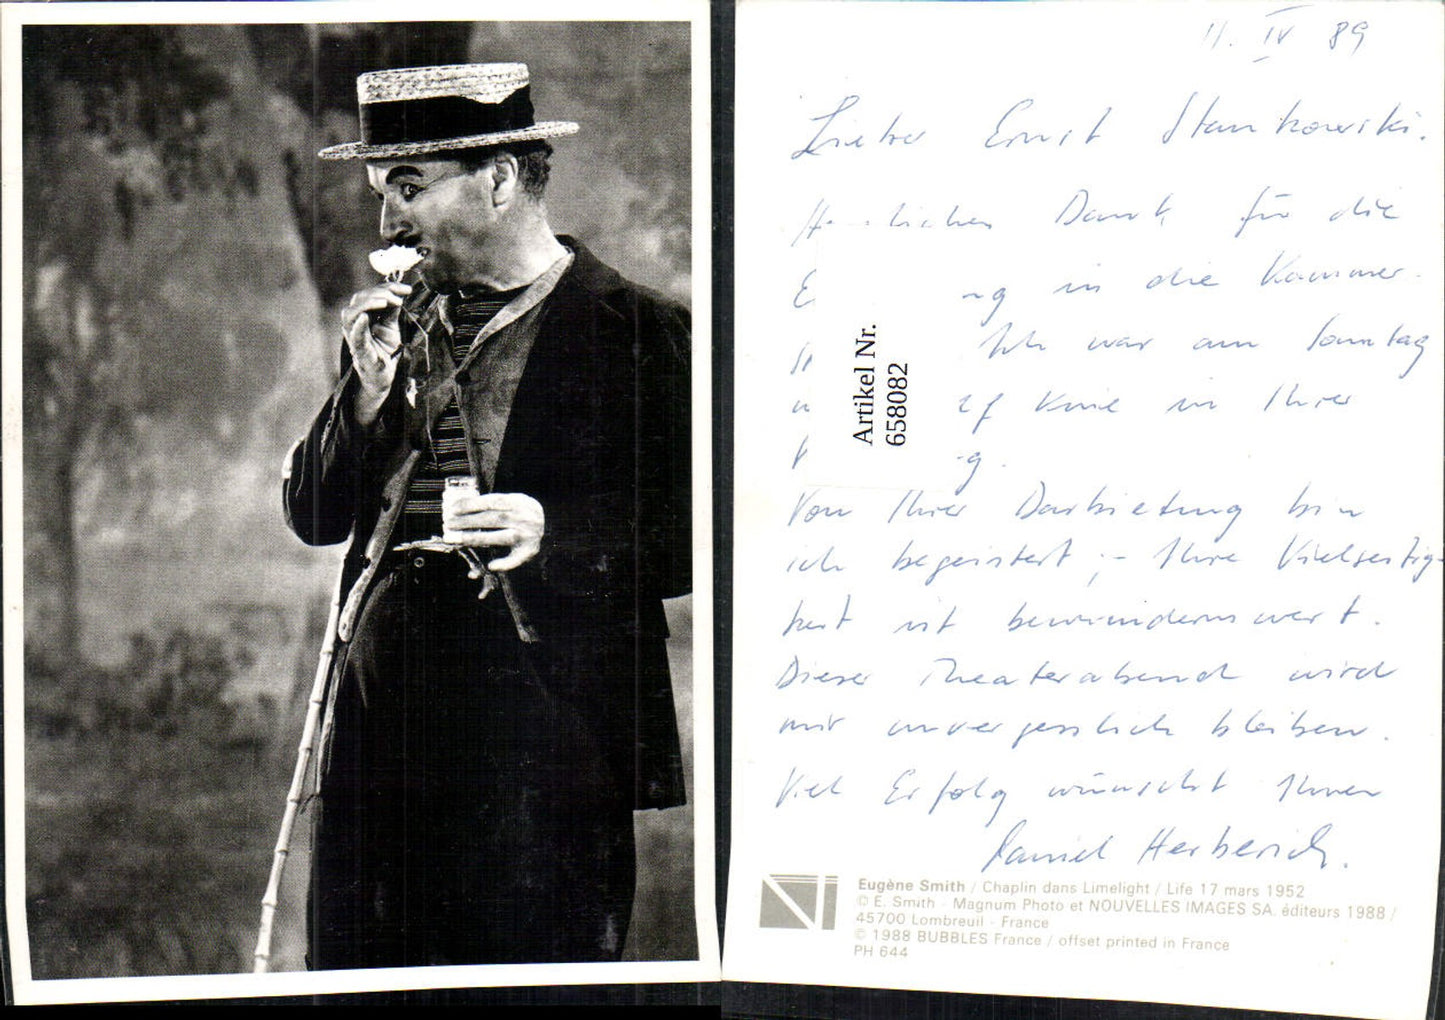 11. IV 89
Lieber Ernst Stankowski.
Dank für die
in die Kammer-
Ich war am Sonntag
in Ihrer
Von Ihrer Darbietung bin
ich begeistert ;- Ihre Vielseitig-
keit ist bewundernswert.
Dieser Theaterabend wird
mir unvergesslich bleiben.
Viel Erfolg wünscht Ihnen
Daniel Herberich.
Artikel Nr.
658082
Eugène Smith / Chaplin dans Limelight / Life 17 mars 1952
© E. Smith - Magnum Photo et NOUVELLES IMAGES SA. éditeurs 1988 /
45700 Lombreuil - France
© 1988 BUBBLES France / offset printed in France
PH 644